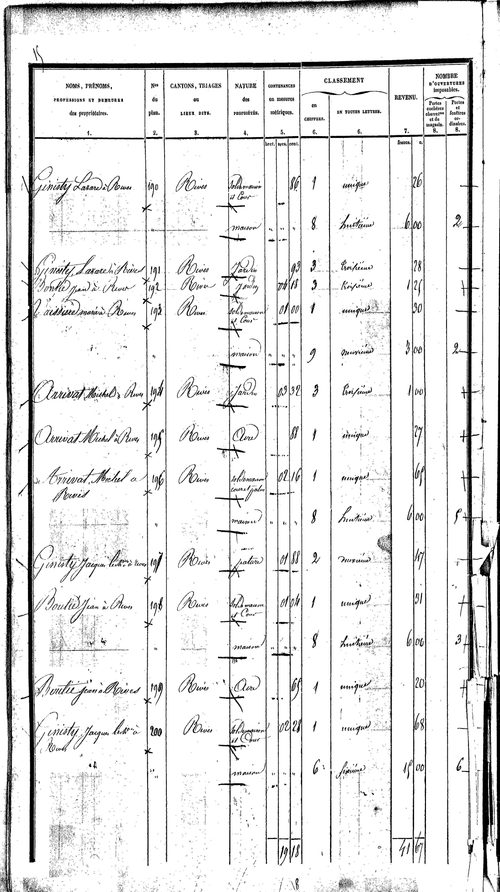 NOMS, PRÉNOMS,
PROFESSIONS ET DEMEURES
des propriétaires.
1.
Nos
du
plan.
2.
CANTONS, TRIAGES
ou
LIEUX DITS.
3.
NATURE
des
PROPRIÉTÉS.
4.
CONTENANCES
en mesures
métriques.
5.
CLASSEMENT
en
CHIFFRES.
6.
EN TOUTES LETTRES.
6.
REVENU.
7.
NOMBRE
D'OUVERTURES
imposables.
Portes
cochères
et de
magasin.
8.
Portes
et
fenêtres
ordinaires.
8.
hect. ares. cent. francs. c.
Ginisty à Rives 190 Rives sol de maison et Cour 86 1 unique 26
maison 8 huitième 6 00 2
Ginisty à Rives 191 Rives Jardin 93 3 troisième 28
Boutié Jean à Rives 192 Rives Jardin 04 18 3 troisième 1 25
à Rives 193 Rives sol de maison et Cour 01 00 1 unique 30
maison 9 neuvième 3 00 2
Arrivat Michel à Rives 194 Rives Jardin 03 32 3 troisième 1 00
Arrivat Michel à Rives 195 Rives 88 1 unique 27
Arrivat Michel à Rives 196 Rives sol de maison 02 16 1 unique 65
maison 8 huitième 6 00 5
Ginisty Jacques à Rives 197 Rives pature 01 88 2 17
Boutié Jean à Rives 198 Rives sol de maison et Cour 01 04 1 unique 31
maison 8 huitième 6 00 3
Boutié Jean à Rives 199 Rives 65 1 unique 20
Ginisty Jacques à Rives 200 Rives sol de maison et Cour 02 28 1 unique 68
maison 6 sixième 15 00 6
19 18 41 67
8